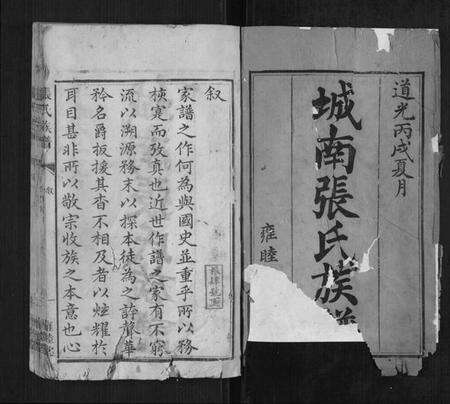 道光丙戌夏月
城南張氏族譜
雍睦
叙
家譜之作何為與國史並重乎所以務
核寔而攷真也近世作譜之家有不窮
流以溯源務末以探本徒為之誇聲華
矜名爵扳援其杳不相及者以炫耀於
耳目甚非所以敬宗收族之本意也心
張氏族譜
叙
雍睦堂